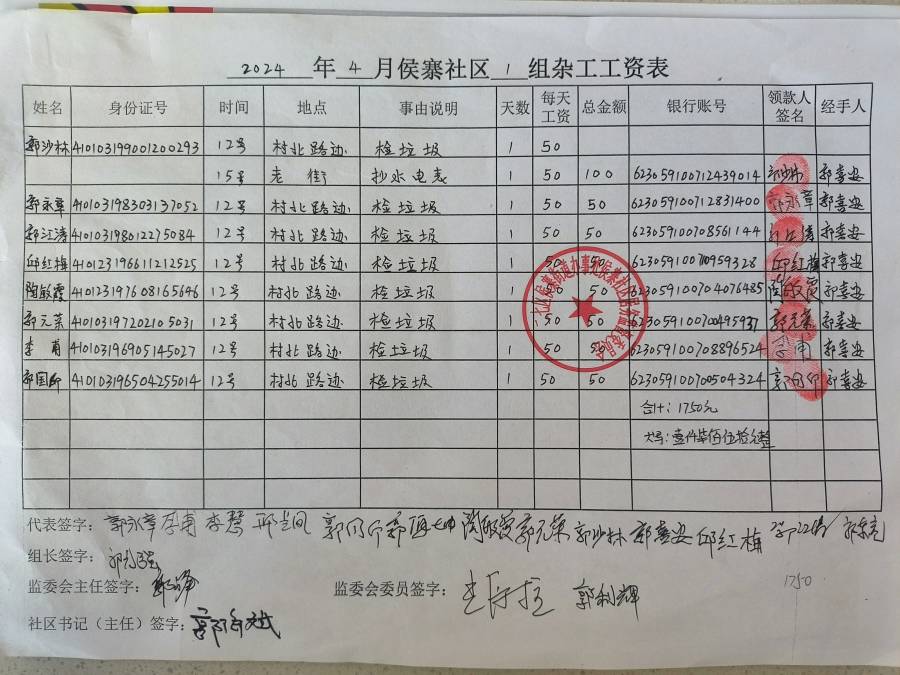 2024 年 4 月侯寨社区 1 组杂工工资表
姓名 身份证号 时间 地点 事由说明 天数 每天工资 总金额 银行账号 领款人签名 经手人
郭沙林 410103199001200293 12号 村北路边 检垃圾 1 50
15号 老街 抄水电表 1 50 100 623059100712439014 郭沙林 郭喜安
郭永章 410103198303137052 12号 村北路边 检垃圾 1 50 50 623059100712831400 郭永章 郭喜安
郭江涛 410103198012275084 12号 村北路边 检垃圾 1 50 50 623059100708561144 郭江涛 郭喜安
邱红梅 410123196611212525 12号 村北路边 检垃圾 1 50 50 623059100710959328 邱红梅 郭喜安
陶敏霞 410123197608165646 12号 村北路边 检垃圾 1 50 50 623059100704076485 陶敏霞 郭喜安
郭元荣 410103197202105031 12号 村北路边 检垃圾 1 50 50 623059100700495937 郭元荣 郭喜安
李甫 410103196905145027 12号 村北路边 检垃圾 1 50 50 623059100708896524 李甫 郭喜安
410103196504255014 12号 村北路边 检垃圾 1 50 50 623059100700504324 郭喜安
合计:1750元
大写:壹仟柒佰伍拾元整
代表签字: 郭永章 李甫 李慧 陶敏霞 郭元荣 郭沙林 郭喜安 邱红梅 郭江涛
组长签字:
监委会主任签字: 监委会委员签字: 郭利辉
1750
社区书记(主任)签字: